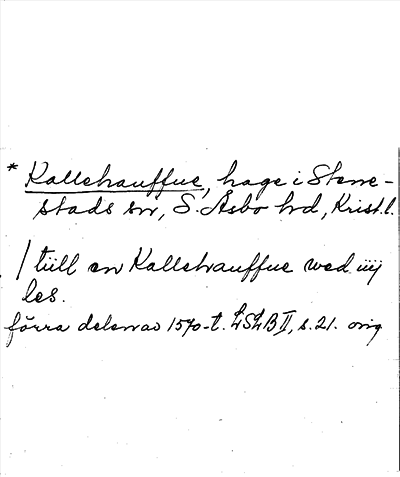 * Kallehauffue, hage i Stene-
stads sn, S. Åsbo hd, Krist.l.
/ tiill en Kallehauffue wed iiij
les.
förra delen av 1570-t. LSLB II, s. 21. orig